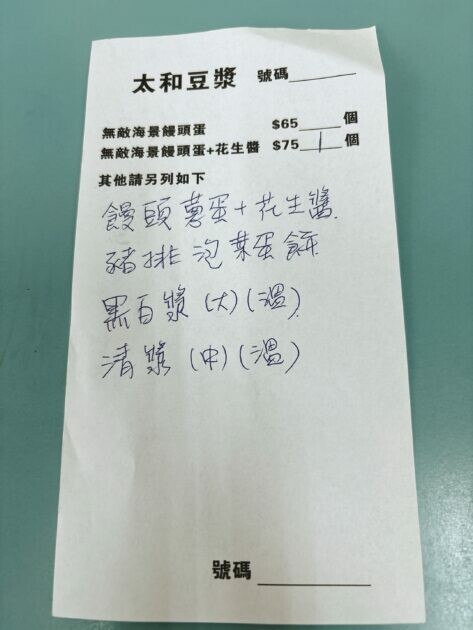 太和豆漿 號碼______
無敵海景饅頭蛋 $65____個
無敵海景饅頭蛋+花生醬 $75__1__個
其他請另列如下
饅頭蔥蛋+花生醬
豬排泡菜蛋餅
黑白漿(大)(溫)
清漿(中)(溫)
號碼__________